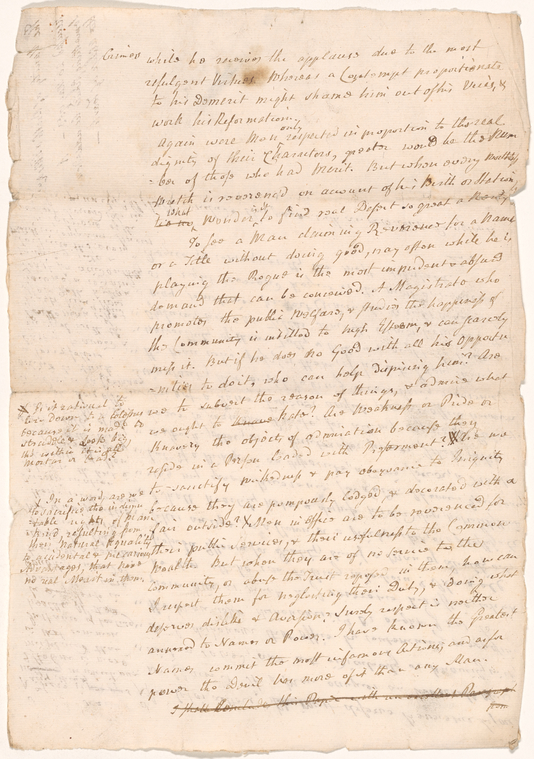 Crimes while he receives the applause due to the most
refulgent Virtues. Whereas a Contempt proportionate
to his Demerit might shame him out of his Vices, &
work his Reformation.
Again were Men only respected in proportion to the real
dignity of their Characters, greater would be the Num
-ber of those who had Merit. But when every worthless
Wretch is reverenced on account of his Birth or Station
what Wonder is it to find real Desert so great a Rarity
To see a Man claiming Reverence for a Name
or a Title without doing good, nay often while he is
playing the Rogue is the most impudent & absurd
demand that can be conceived. A Magistrate who
promotes the public Welfare, & studies the happiness of
the Community is intitled to high Esteem, & can scarcely
miss it. But if he does no Good with all his Opportu
-nities to do it, who can help dispising him? Are
we to subvert the reason of things, & admire what
we ought to hate? Are Weakness or Pride or
Knavery the objects of admiration because they
reside in a Person loaded with Preferment? X Are we
to sanctify wickedness & pay obeysance to Iniquity
because they are pompously lodged & decorated with a
fair outside? X Men in office are to be reverenced for
their public Services, & their usefulness to the Common
Wealth. But when they are of no Service to the
Community, or abuse the Trust reposed in them, how can
I respect them for neglecting their Duty, & doing what
deserves dislike & Aversion; Surely respect is neither
annexed to Names or Power. I have known the Greatest
Names commit the most infamous Actions, and as for
power the Devil has more of it than any Man.
I shall Conclude this Paper with an excellent Paragraph
from
X Is it rational to
bow down to a Colossus
because it is made to
straddle & look big
tho within it is all
mortar or Lead?
X In a word, are we
to sacrifice the indispu
-table rights of Man
kind, resulting from
their natural Equality
to accidental &
Advantages, that have
no real Merit in them.